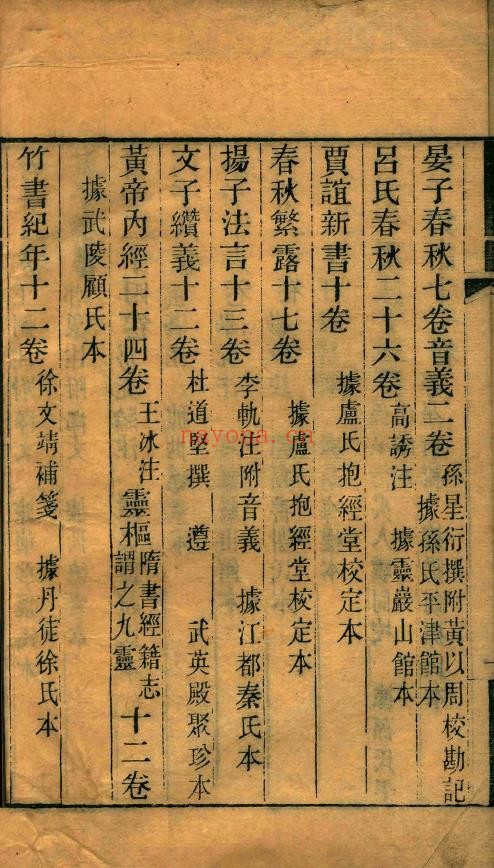 晏子春秋七卷音義二卷 孫星衍撰附黃以周校勘記 據孫氏平津館本
呂氏春秋二十六卷 高誘注 據靈巖山館本
賈誼新書十卷 據盧氏抱經堂校定本
春秋繁露十七卷 據盧氏抱經堂校定本
揚子法言十三卷 李軌注附音義 據江都秦氏本
文子纘義十二卷 杜道堅撰 遵 武英殿聚珍本
黃帝內經二十四卷 王冰注 靈樞 隋書經籍志謂之九靈 十二卷
據武陵顧氏本
竹書紀年十二卷 徐文靖補箋 據丹徒徐氏本
nayona.cn